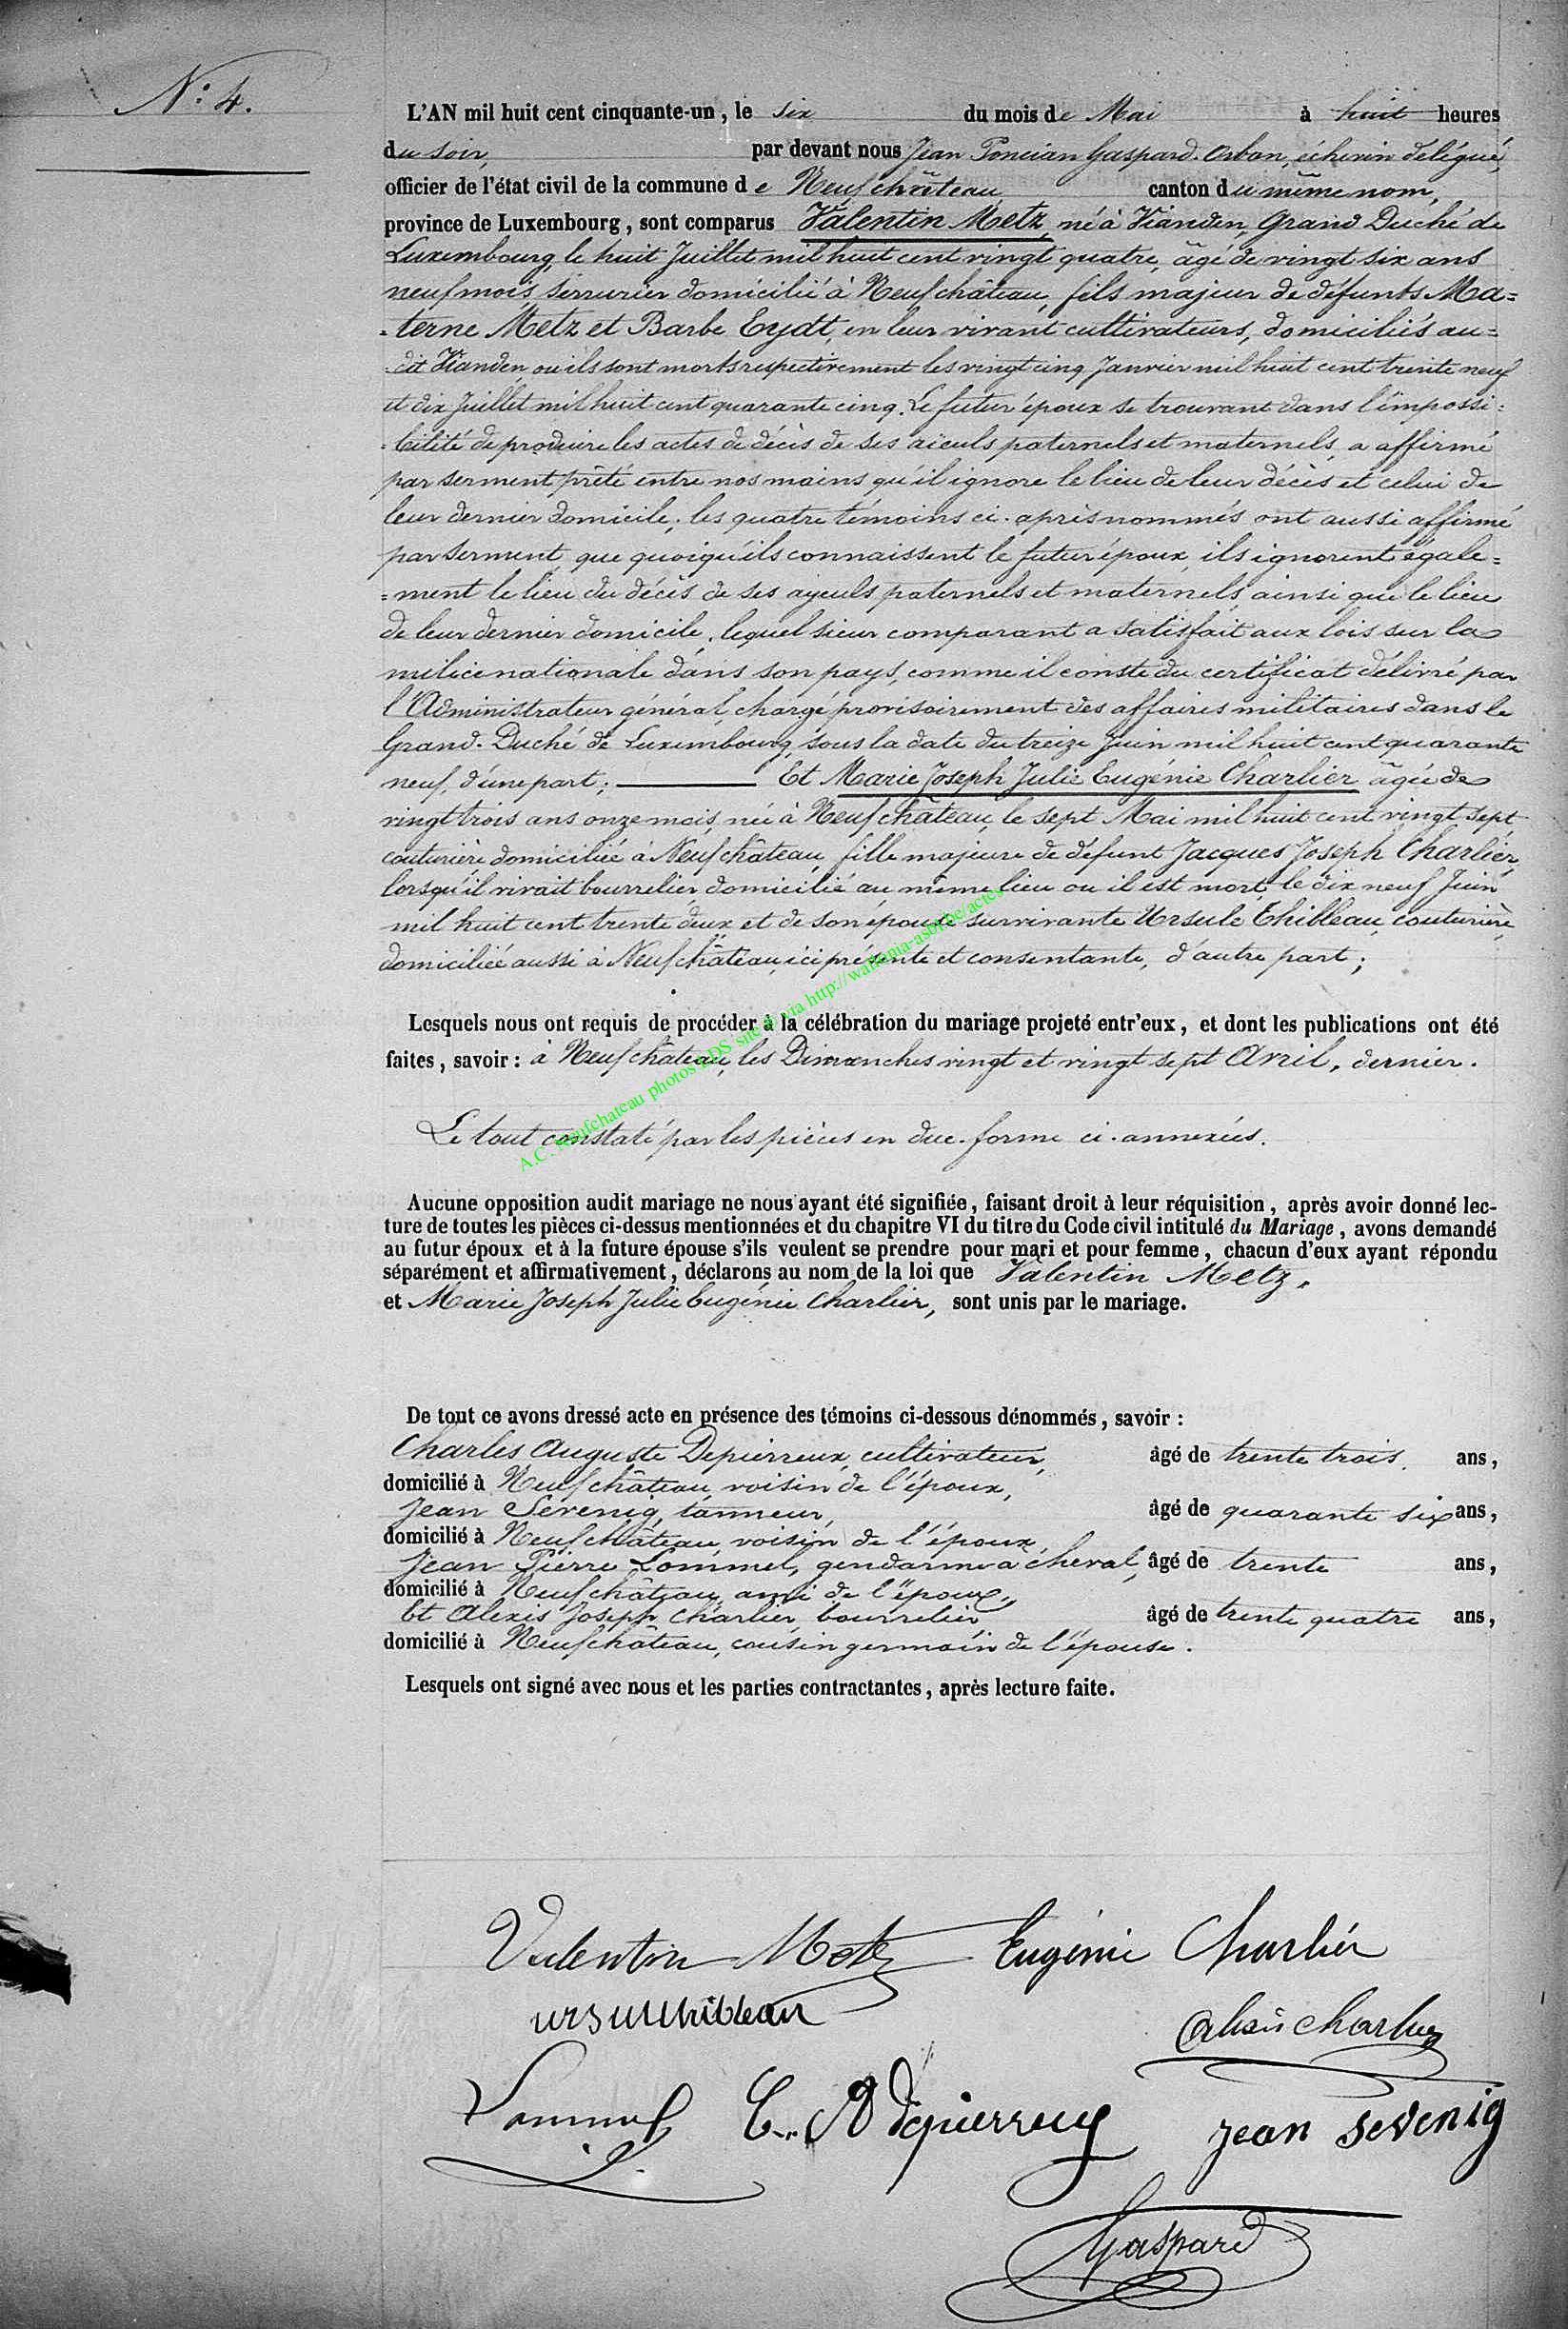 N.° 4.
L'AN mil huit cent cinquante-un, le six du mois de Mai à huit heures
du soir, par devant nous Jean Poncian Gaspard-Orban, échevin délégué,
officier de l'état civil de la commune de Neufchâteau canton du même nom,
province de Luxembourg, sont comparus Valentin Metz, né à Vianden, Grand Duché de
Luxembourg, le huit Juillet mil huit cent vingt quatre, âgé de vingt six ans
neuf mois, serrurier domicilié à Neufchâteau, fils majeur de défunts Ma=
=terne Metz et Barbe Eydt, en leur vivant cultivateurs, domiciliés au=
=dit Vianden où ils sont morts respectivement les vingt cinq Janvier mil huit cent trente neuf
et dix Juillet mil huit cent quarante cinq. Le futur époux se trouvant dans l'impossi=
=bilité de produire les actes de décès de ses aïeuls paternels et maternels, a affirmé
par serment prêté entre nos mains qu'il ignore le lieu de leur décès et celui de
leur dernier domicile; les quatre témoins ci-après nommés ont aussi affirmé
par serment, que quoiqu'ils connaissent le futur époux, ils ignorent égale=
=ment le lieu du décès de ses ayeuls paternels et maternels ainsi que le lieu
de leur dernier domicile, lequel sieur comparant a satisfait aux lois sur la
milice nationale dans son pays, comme il conste du certificat délivré par
l'Administrateur général, chargé provisoirement des affaires militaires dans le
Grand-Duché de Luxembourg, sous la date du treize Juin mil huit cent quarante
neuf, d'une part; Et Marie Joseph Julie Eugénie Charlier âgée de
vingt trois ans onze mois, née à Neufchâteau, le sept Mai mil huit cent vingt sept,
couturière domiciliée à Neufchâteau, fille majeure de défunt Jacques Joseph Charlier,
lorsqu'il vivait bourrelier domicilié au même lieu où il est mort, le dix neuf Juin
mil huit cent trente deux et de son épouse survivante Ursule Thibleau, couturière,
domiciliée aussi à Neufchâteau, ici présente et consentante, d'autre part;
Lesquels nous ont requis de procéder à la célébration du mariage projeté entr'eux, et dont les publications ont été
faites, savoir: à Neufchâteau, les Dimanches vingt et vingt sept Avril, dernier.
Le tout constaté par les pièces en due forme ci-annexées.
A.C. Neufchateau photos GDS site via http://wallonia-asbl.be/actes
Aucune opposition audit mariage ne nous ayant été signifiée, faisant droit à leur réquisition, après avoir donné lec-
ture de toutes les pièces ci-dessus mentionnées et du chapitre VI du titre du Code civil intitulé du Mariage, avons demandé
au futur époux et à la future épouse s'ils veulent se prendre pour mari et pour femme, chacun d'eux ayant répondu
séparément et affirmativement, déclarons au nom de la loi que Valentin Metz,
et Marie Joseph Julie Eugénie Charlier, sont unis par le mariage.
De tout ce avons dressé acte en présence des témoins ci-dessous dénommés, savoir:
Charles Auguste Depierreux, cultivateur, âgé de trente trois ans,
domicilié à Neufchâteau, voisin de l'époux,
Jean Sevenig, tanneur, âgé de quarante six ans,
domicilié à Neufchâteau, voisin de l'époux,
Jean Pierre Lommel, gendarme à cheval, âgé de trente ans,
domicilié à Neufchâteau, ami de l'époux,
Et Alexis Joseph Charlier, bourrelier âgé de trente quatre ans,
domicilié à Neufchâteau, cousin germain de l'épouse.
Lesquels ont signé avec nous et les parties contractantes, après lecture faite.
Valentin Metz Eugénie Charlier
ursule thibleau Alexis charlier
Lommel C. A Depierreux jean sevenig
Gaspard